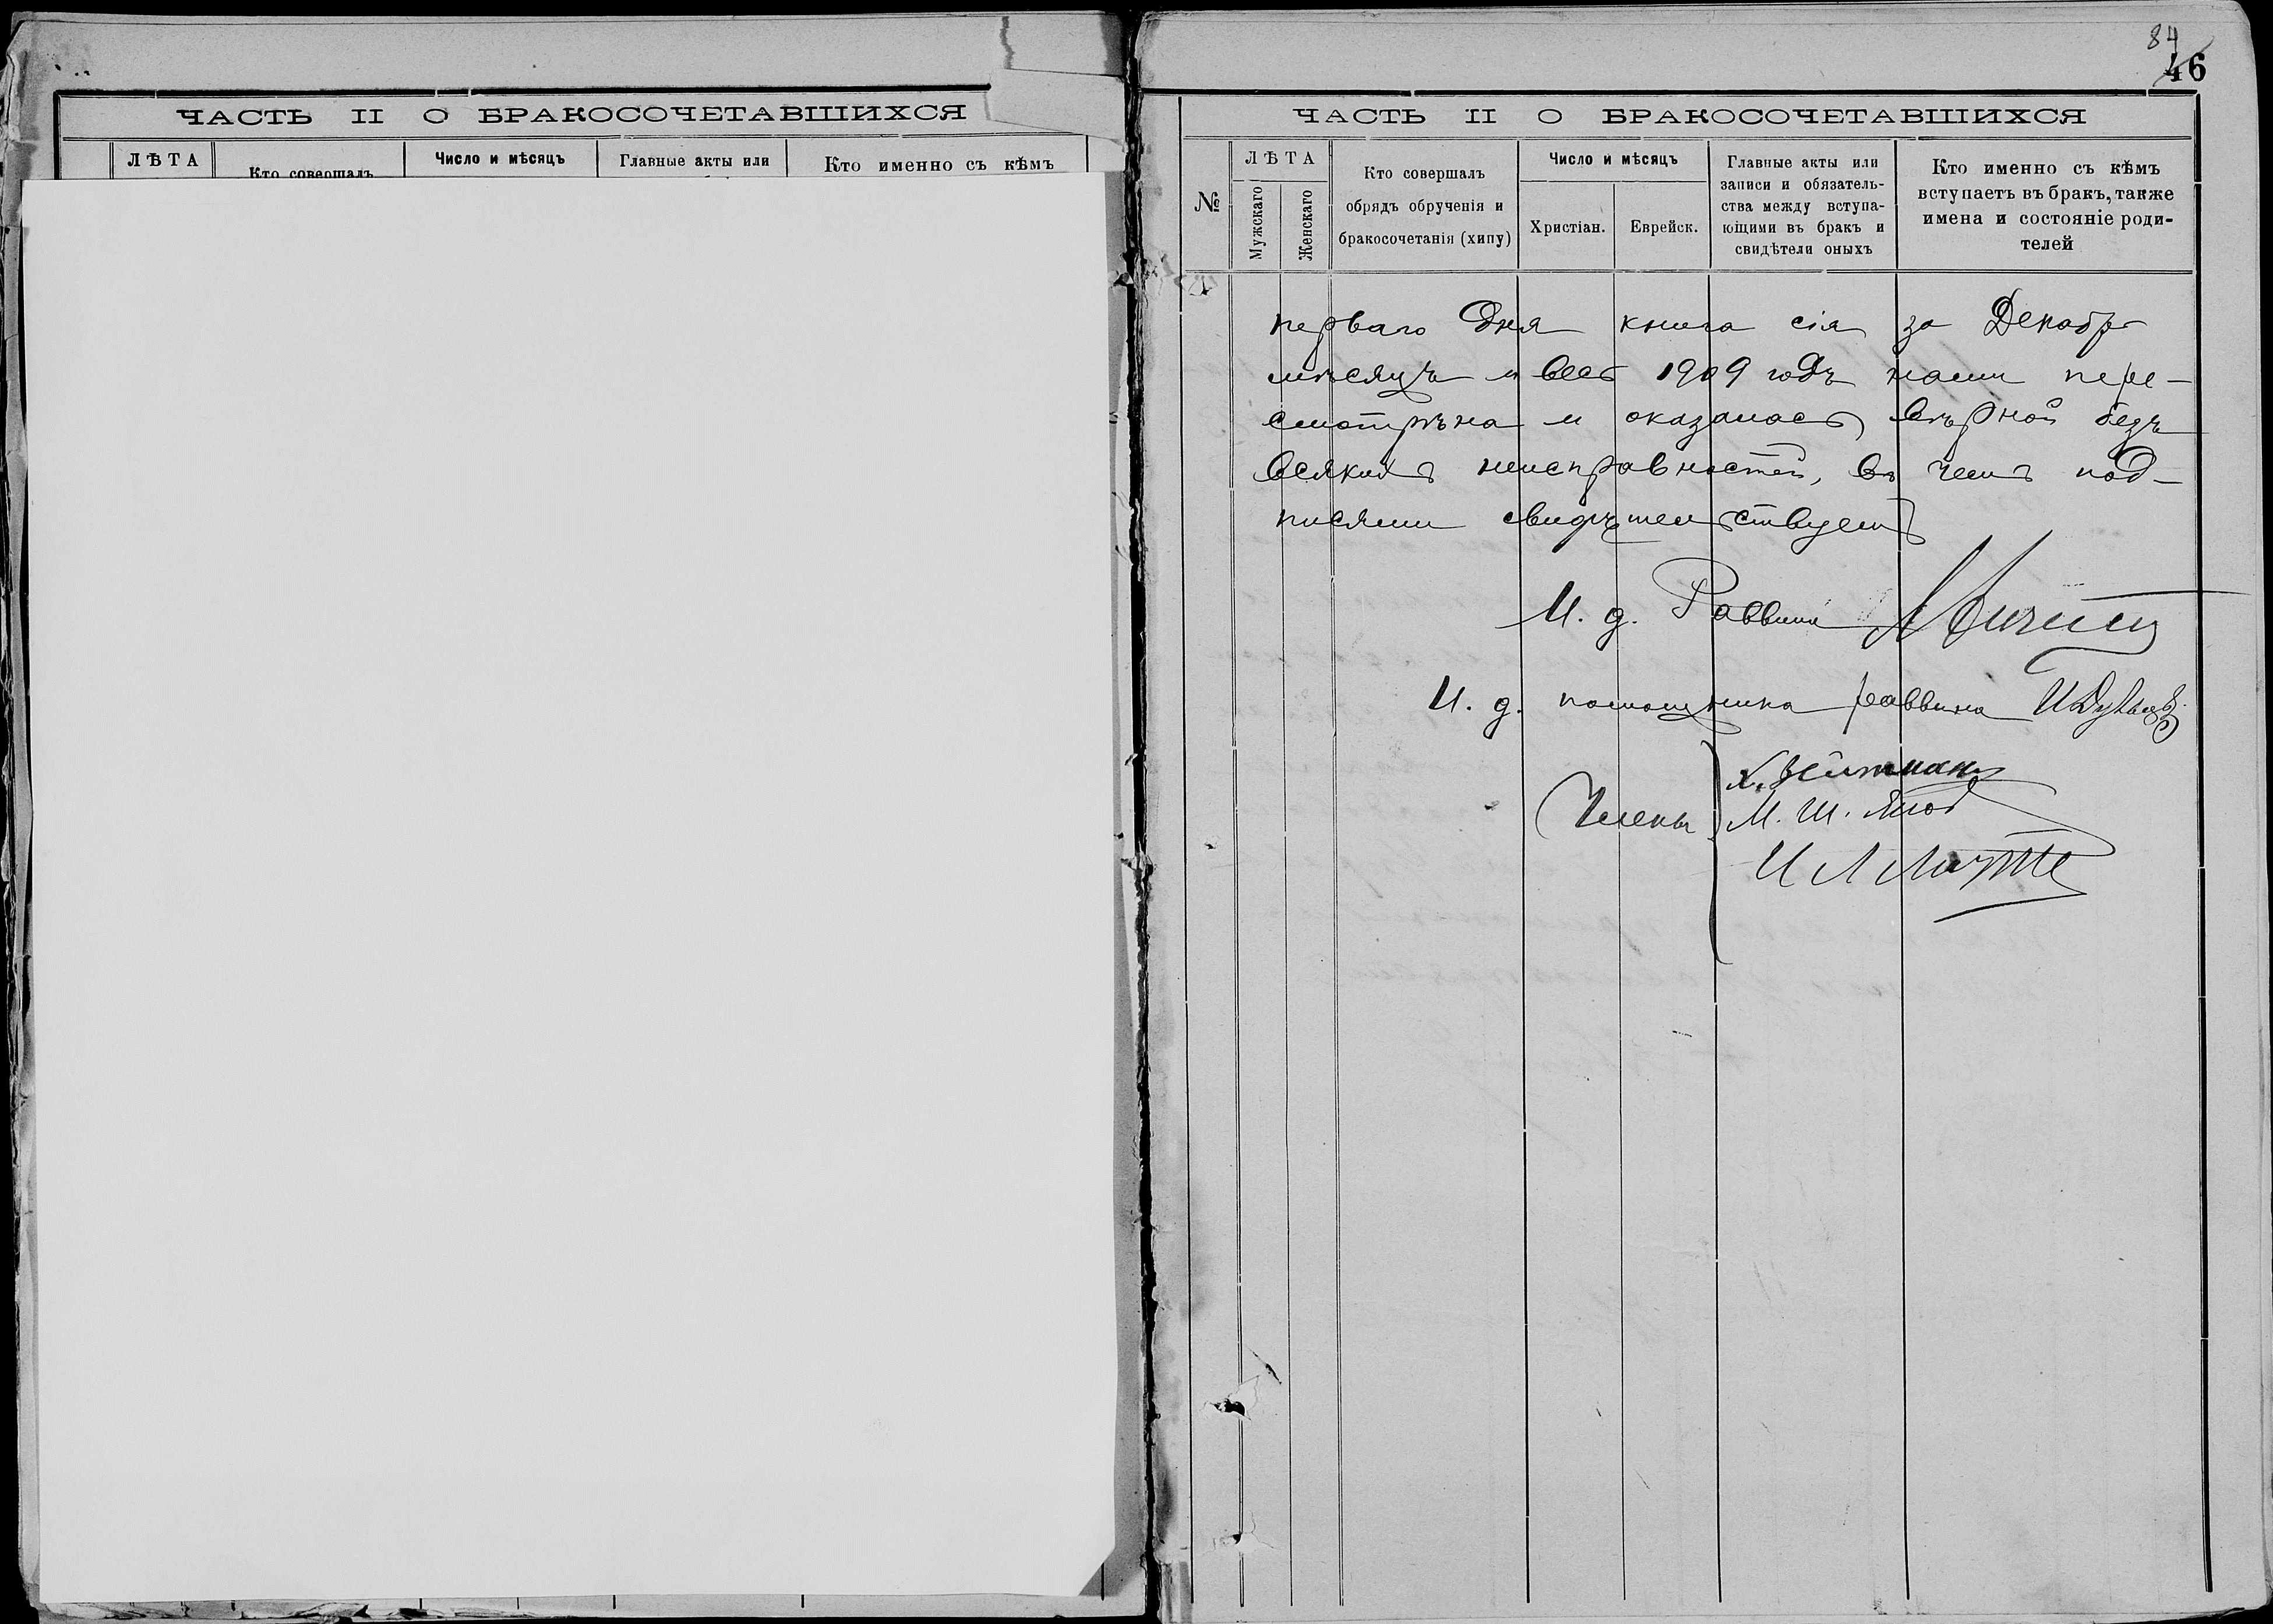 ЧАСТЬ II О БРАКОСОЧЕТАВШИХСЯ
ЛѢТА
Кто совершалъ
Число и мѣсяцъ
Главные акты или
Кто именно съ кѣмъ
84
46
ЧАСТЬ II О БРАКОСОЧЕТАВШИХСЯ
№
ЛѢТА
Мужскаго
Женскаго
Кто совершалъ
обрядъ обрученія и
бракосочетанія (хипу)
Число и мѣсяцъ
Христіан.
Еврейск.
Главные акты или
записи и обязатель-
ства между вступа-
ющими въ бракъ и
свидѣтели оныхъ
Кто именно съ кѣмъ
вступаетъ въ бракъ, также
имена и состояніе роди-
телей
перваго дня книга сія за Декабрь
мѣсяцъ и весь 1909 годъ нами пере-
смотрѣна и оказалась вѣрной безъ
всякихъ неисправностей, въ чемъ под-
писями свидѣтельствуемъ
И. д. Раввина
И. д. помощника раввина
Члены
М. Ш.
И Л